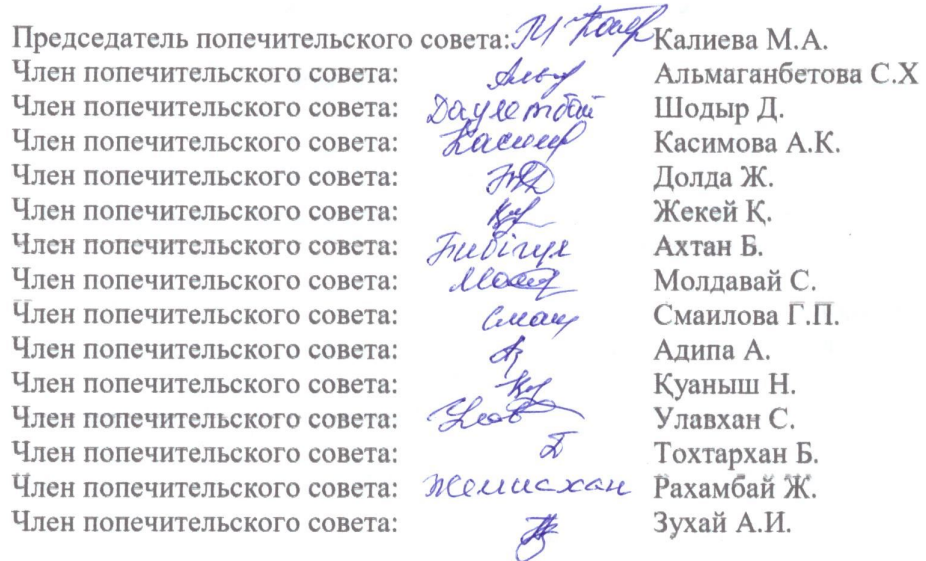 Председатель попечительского совета: Калиева М.А.
Член попечительского совета: Альмаганбетова С.Х
Член попечительского совета: Даулетбай Шодыр Д.
Член попечительского совета: Касим Касимова А.К.
Член попечительского совета: Долда Ж.
Член попечительского совета: Жекей Қ.
Член попечительского совета: Бибігүл Ахтан Б.
Член попечительского совета: Молдавай С.
Член попечительского совета: Смаилова Г.П.
Член попечительского совета: Адипа А.
Член попечительского совета: Қуаныш Н.
Член попечительского совета: Улавхан С.
Член попечительского совета: Тохтархан Б.
Член попечительского совета: Жемисхан Рахамбай Ж.
Член попечительского совета: Зухай А.И.